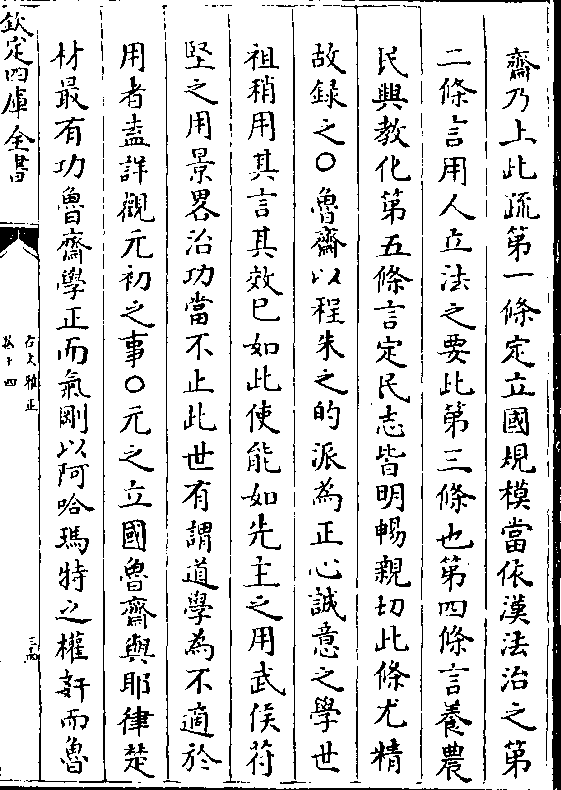 齋乃上此疏第一條定立國規模當依漢法治之第
二條言用人立法之要此第三條也第四條言養農
民興教化第五條言定民志皆明暢親切此條尤精
故録之○魯齋以程朱之的派為正心誠意之學世
祖稍用其言其效已如此使能如先主之用武侯苻
堅之用景畧治功當不止此世有謂道學為不適於
用者盍詳觀元初之事○元之立國魯齋與耶律楚
材最有功魯齋學正而氣剛以阿哈瑪特之權奸而魯
欽定四庫全書
古文雅正
卷十四